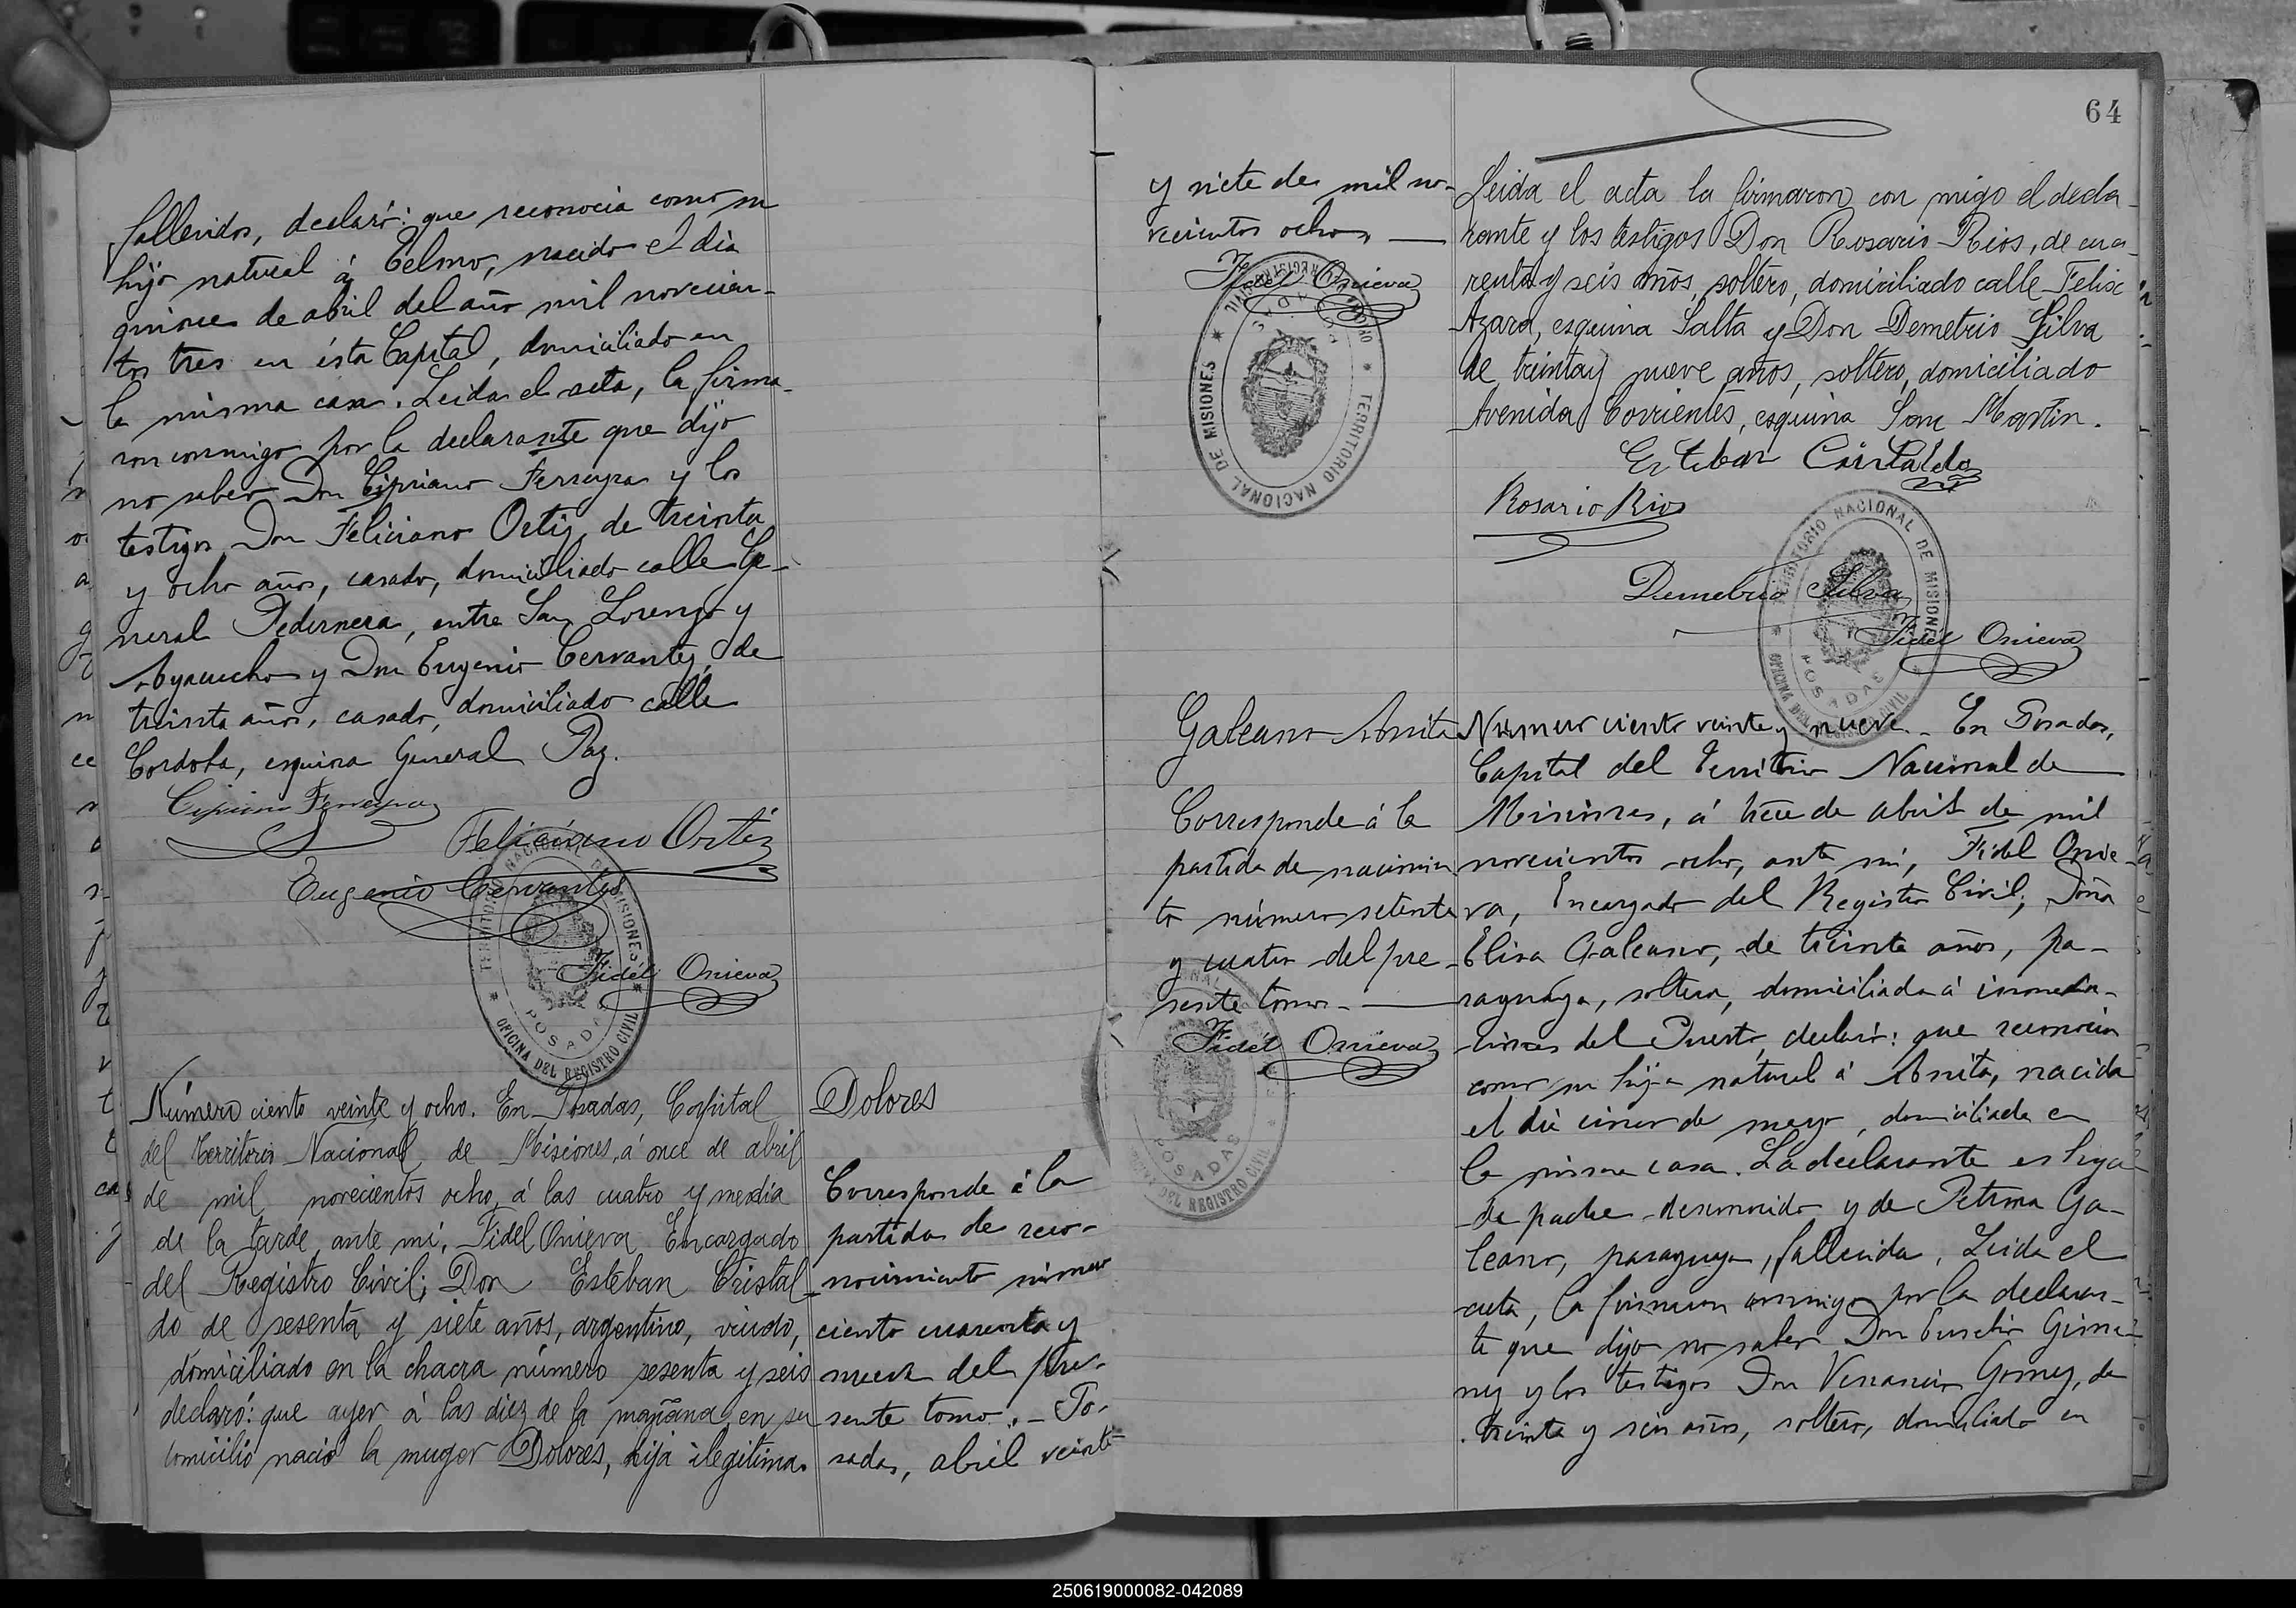 fallecidos, declaró: que reconocia como su
hijo natural á Telmo, nacido el dia
quince de abril del año mil novecien-
tos tres en ésta Capital, domiciliado en
la misma casa. Leida el acta, la firma-
ron conmigo por la declarante que dijo
no saber Don Cipriano Ferreyra y los
testigos Don Feliciano Ortiz, de treinta
y ocho años, casado, domiciliado calle Ge-
neral Pedernera, entre San Lorenzo y
Ayacucho y Don Eugenio Cervantes, de
treinta años, casado, domiciliado calle
Cordoba, esquina General Paz.
Cipriano Ferreyra
Feliciano Ortiz
Eugenio Cervantes
Fidél Onieva
TERRITORIO NACIONAL DE MISIONES
OFICINA DEL REGISTRO CIVIL
POSADAS
Número ciento veinte y ocho. En Posadas, Capital
del Territorio Nacional de Misiones, á once de abril
de mil novecientos ocho, á las cuatro y media
de la tarde, ante mí, Fidel Onieva Encargado
del Registro Civil; Don Esteban Cristal-
do de sesenta y siete años, argentino, viudo,
domiciliado en la chacra número sesenta y seis
declaró: que ayer á las diez de la mañana en su
domicilio nació la muger Dolores, hija ilegitima.
Dolores
Corresponde á la
partida de reco-
nocimiento número
ciento cuarenta y
nueve del pre-
sente tomo. - Po-
sadas, abril veinte
64
y siete de mil no-
vecientos ocho. —
Fidél Onieva
TERRITORIO NACIONAL DE MISIONES
POSADAS
Leida el acta la firmaron con migo el decla-
rante y los testigos Don Rosario Rios, de cua-
renta y seis años, soltero, domiciliado calle Felix
Azara, esquina Salta y Don Demetrio Silva
de treinta y nueve años, soltero, domiciliado
Avenida Corrientes, esquina San Martin.
Esteban Cristaldo
Rosario Rios
Demetrio Silva
Fidél Onieva
TERRITORIO NACIONAL DE MISIONES
OFICINA DEL REGISTRO CIVIL
POSADAS
Galeano Anita
Corresponde á la
partida de nacimien
to número setenta
y cuatro del pre-
sente tomo. —
Fidél Onieva
POSADAS
OFICINA DEL REGISTRO CIVIL
Número ciento veinte y nueve. En Posadas,
Capital del Territorio Nacional de
Misiones, á trece de abril de mil
novecientos ocho, ante mí, Fidel Onie-
va, Encargado del Registro Civil; Doña
Elisa Galeano, de treinta años, pa-
raguaya, soltera, domiciliada á inmedia-
ciones del Puerto, declaró: que reconocia
como su hija natural á Anita, nacida
el dia cinco de mayo, domiciliada en
la misma casa. La declarante es hija
de padre desconocido y de Petrona Ga-
leano, paraguaya, fallecida. Leida el
acta, la firmaron conmigo por la declaran-
te que dijo no saber Don Eusebio Gime-
nez y los testigos Don Venancio Gomez, de
treinta y seis años, soltero, domiciliado en
250619000082-042089